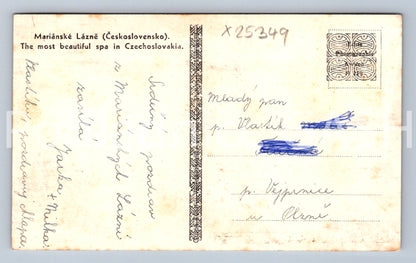 Mariánské Lázně (Československo).
The most beautiful spa in Czechoslovakia.
X25349
Foto
Fotografia
Srdečný pozdrav
z Mariánských Lázní
zasílá
Jarka + Milka
pozdravy
Mladý pan
p. Vlastík
p. Vejprnice
u Plzně